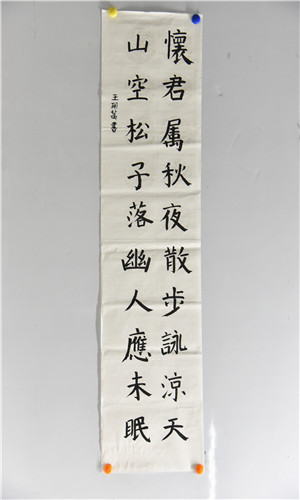 懷君属秋夜散步詠涼天
山空松子落幽人應未眠